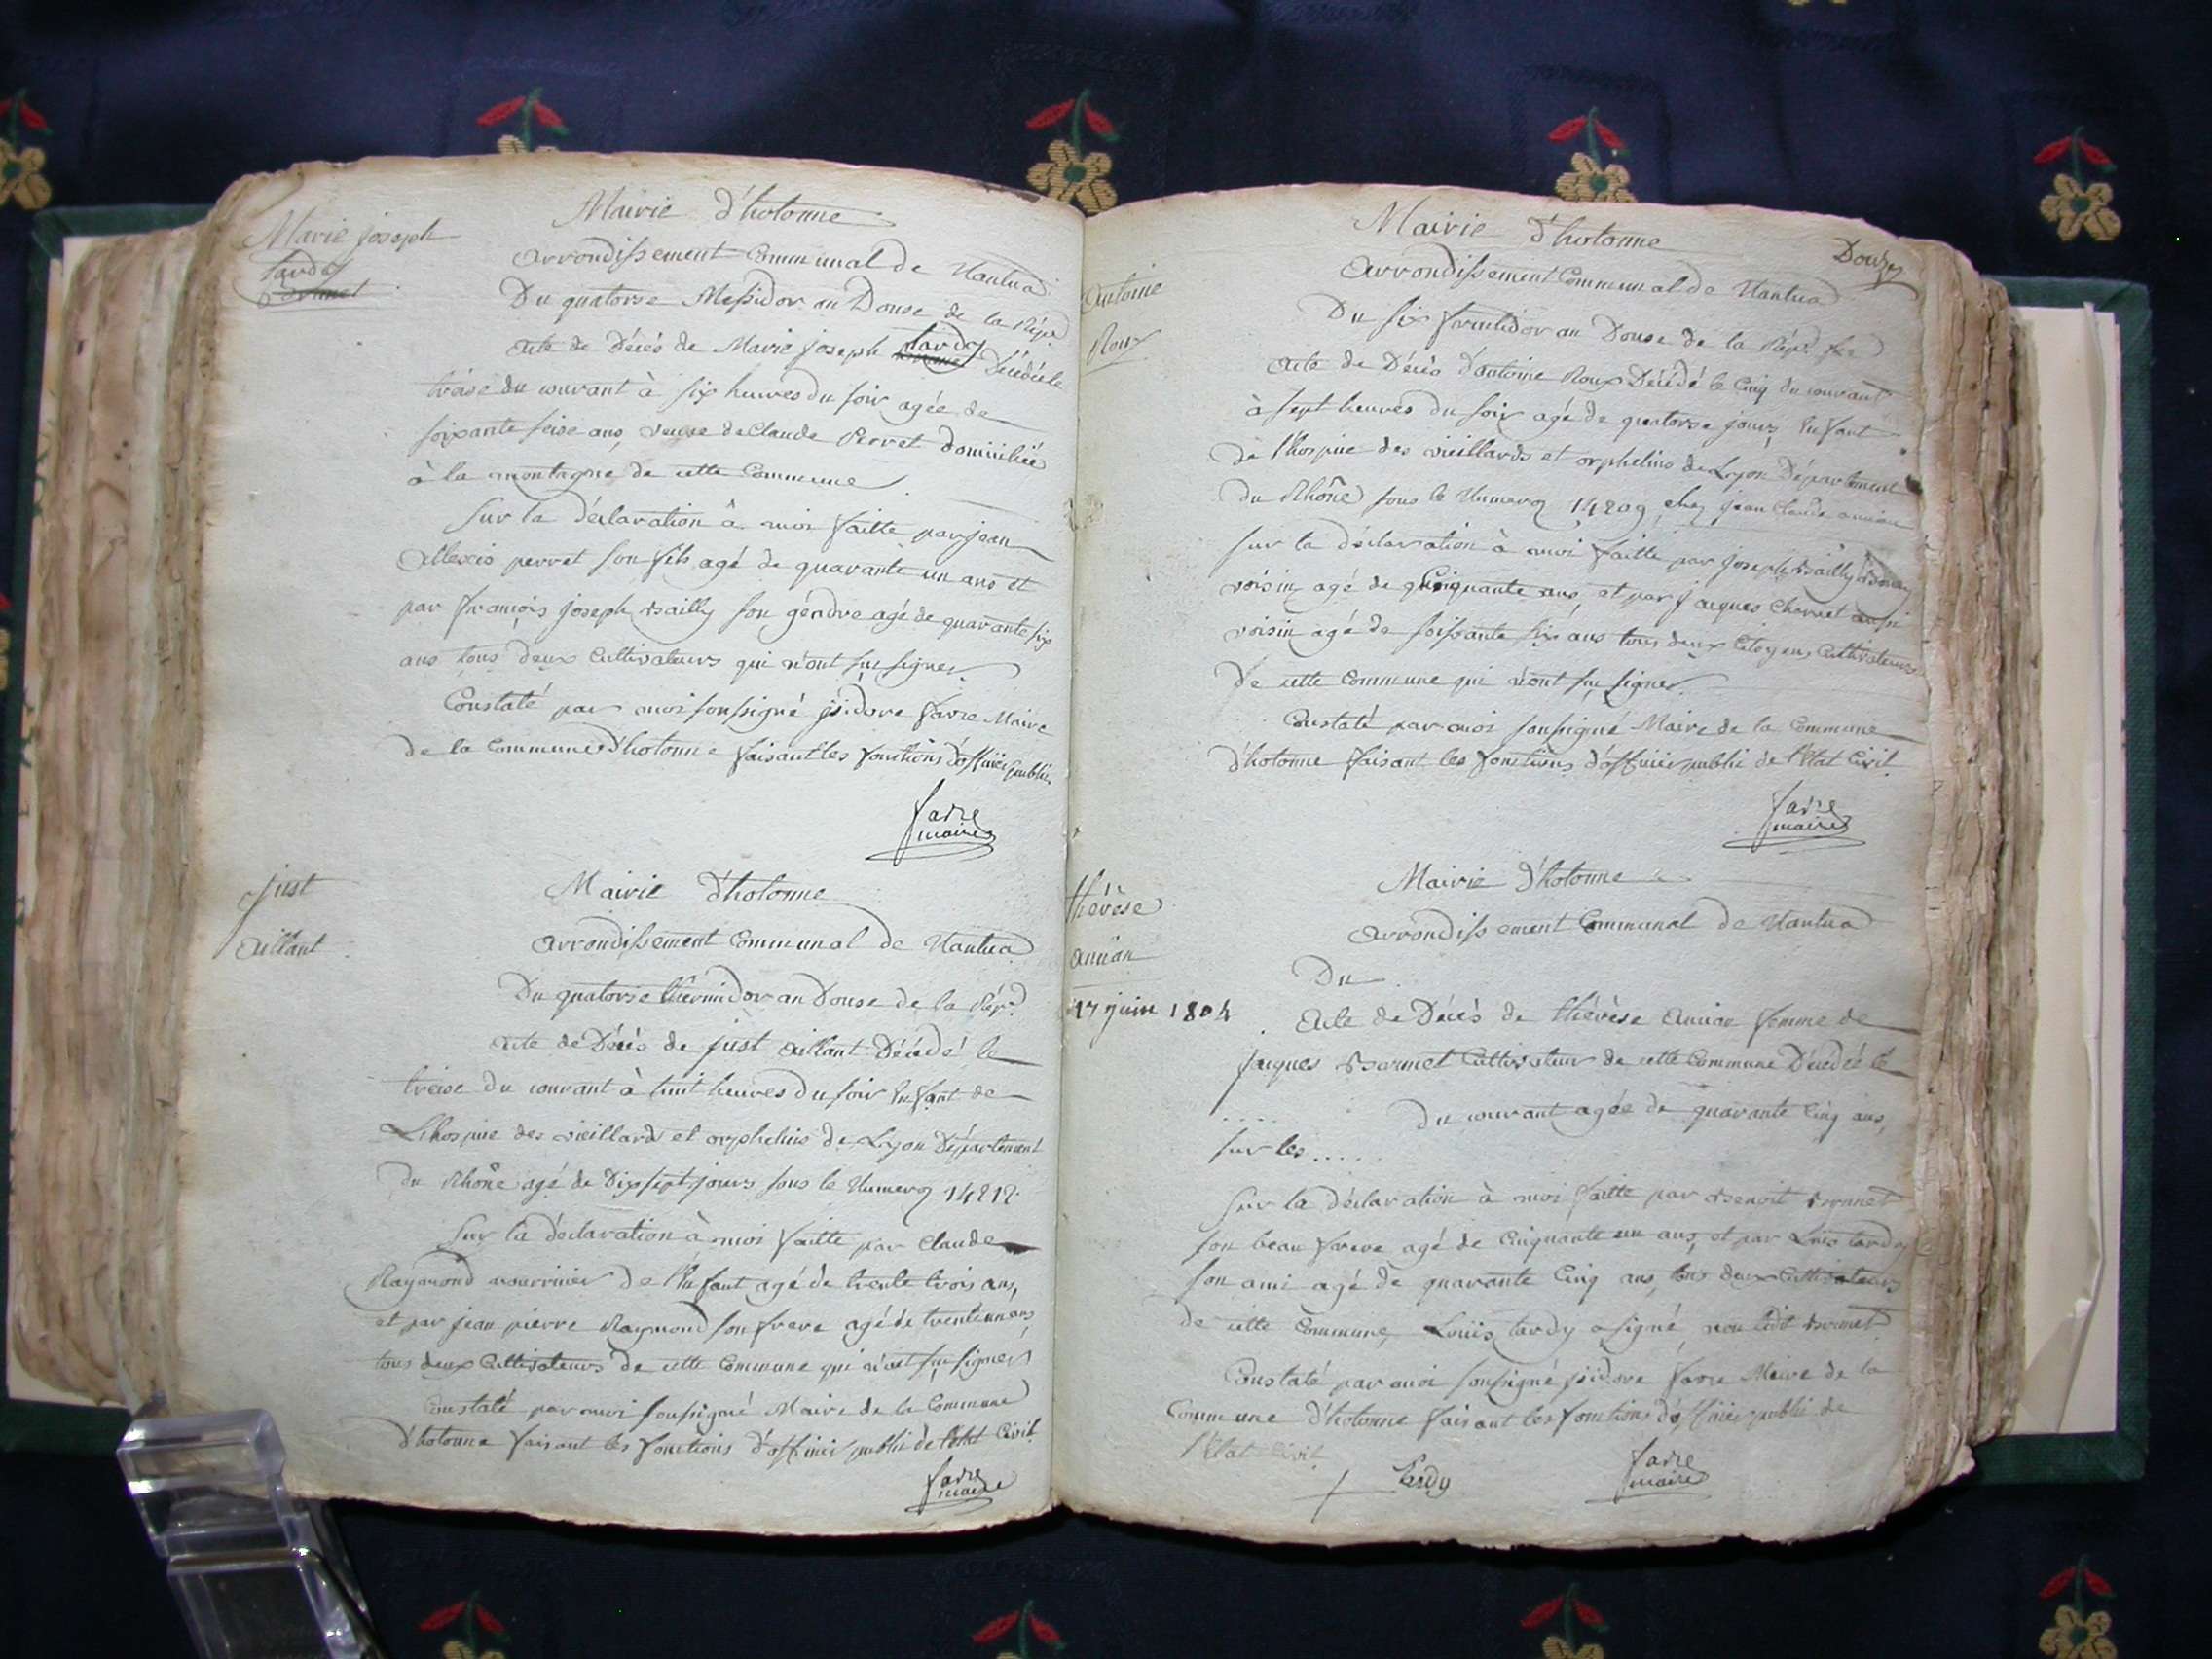 Mairie d'hotonne
Marie joseph
tardy
Arrondissement Communal de Nantua
Du quatorse Messidor an Douse de la Rép.
Acte de Décès de Marie joseph tardy Décédé le
treise du courant à six heures du soir agée de
soixante seise ans, veuve de Claude Perret domiciliée
à la montagne de cette Commune
Sur la déclaration à moi faitte par jean
Allexis perret son fils agé de quarante un ans et
par françois joseph Bailly son gendre agé de quarante six
ans tous deux Cultivateurs qui n'ont su signer
Constaté par moi soussigné isidore favre Maire
de la Commune d'hotonne faisant les fonctions d'officier public
favre
maire
Mairie d'hotonne
just
aillant
Arrondissement Communal de Nantua
Du quatorse thermidor an Douse de la Rép.
Acte de Décès de just aillant Décédé le
treise du courant à huit heures du soir Enfant de
L'hospice des vieillards et orphelins de Lyon Département
du Rhône agé de Dix sept jours sous le Numero 14212
Sur la déclaration à moi faitte par Claude
Raymond nourricier de l'Enfant agé de trente trois ans,
et par jean pierre Raymond son frere agé de trente un ans
tous deux Cultivateurs de cette Commune qui n'ont su signer
Constaté par moi soussigné Maire de la Commune
d'hotonne faisant les fonctions d'officier public de l'Etat Civil
favre
maire
Mairie d'hotonne
Douze
Antoine
Roux
Arrondissement Communal de Nantua
Du six fructidor an Douse de la Rép.
Acte de Décès d'antoine Roux Décédé le Cinq du courant
à sept heures du soir agé de quatorse jours Enfant
de l'hospice des vieillards et orphelins de Lyon Département
du Rhône sous le Numero 14209 chez jean Claude ancian
Sur la déclaration à moi faitte par joseph Bailly
voisin agé de Cinquante ans, et par jacques Charvet aussi
voisin agé de soixante six ans tous deux Citoyens Cultivateurs
De cette Commune qui n'ont su signer
Constaté par moi soussigné Maire de la Commune
d'hotonne faisant les fonctions d'officier public de l'Etat Civil
favre
maire
Mairie d'hotonne
thérèse
ancian
17 juin 1804
Arrondissement Communal de Nantua
Du
Acte de Décès de thérèse Ancian femme de
jacques Bornet Cultivateur de cette Commune Décédée le
.... du courant agée de quarante Cinq ans,
sur les .....
Sur la déclaration à moi faitte par Benoit Bornet
son beau frere agé de Cinquante un ans, et par Louis tardy
son ami agé de quarante Cinq ans, tous deux Cultivateurs
de cette Commune, Louis tardy a signé, non ledit Bornet
Constaté par moi soussigné isidore favre Maire de la
Commune d'hotonne faisant les fonctions d'officier public de
l'Etat Civil
Tardy
favre
maire